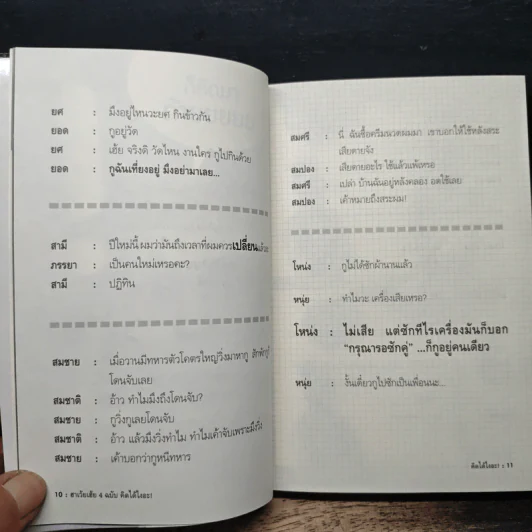 ยศ : มึงอยู่ไหนวะยศ กินข้าวกัน
ยอด : กูอยู่วัด
ยศ : เฮ้ย จริงดิ วัดไหน งานใคร กูไปกินด้วย
ยอด : กูฉันเที่ยงอยู่ มึงอย่ามาเลย...
สามี : ปีใหม่นี้ ผมว่ามันถึงเวลาที่ผมควรเปลี่ยนแล้วล่ะ
ภรรยา : เป็นคนใหม่เหรอคะ?
สามี : ปฏิทิน
สมชาย : เมื่อวานมีทหารตัวโคตรใหญ่วิ่งมาหากู
โดนจับเลย
สมชาติ : อ้าว ทำไมมึงถึงโดนจับ?
สมชาย : กูวิ่งกูเลยโดนจับ
สมชาติ : อ้าว แล้วมึงวิ่งทำไม ทำไมเค้าจับเพราะมึงวิ่ง
สมชาย : เค้าบอกว่ากูหนีทหาร
10 : ฮาเว้ยเฮ้ย 4 ฉบับ คิดได้ไงอะ!
สมศรี : นี่ ฉันซื้อครีมนวดผมมา เขาบอกให้ใช้หลังสระ
เสียดายจัง
สมปอง : เสียดายอะไร ใช้แล้วแพ้เหรอ
สมศรี : เปล่า บ้านฉันอยู่หลังคลอง อดใช้เลย
สมปอง : เค้าหมายถึงสระผม!
โหน่ง : กูไม่ได้ซักผ้านานแล้ว
หนุ่ย : ทำไมวะ เครื่องเสียเหรอ?
โหน่ง : ไม่เสีย แต่ซักทีไรเครื่องมันก็บอก
“กรุณารอซักคู่” ...ก็กูอยู่คนเดียว
หนุ่ย : งั้นเดี๋ยวกูไปซักเป็นเพื่อนนะ...
คิดได้ไงอะ! : 11